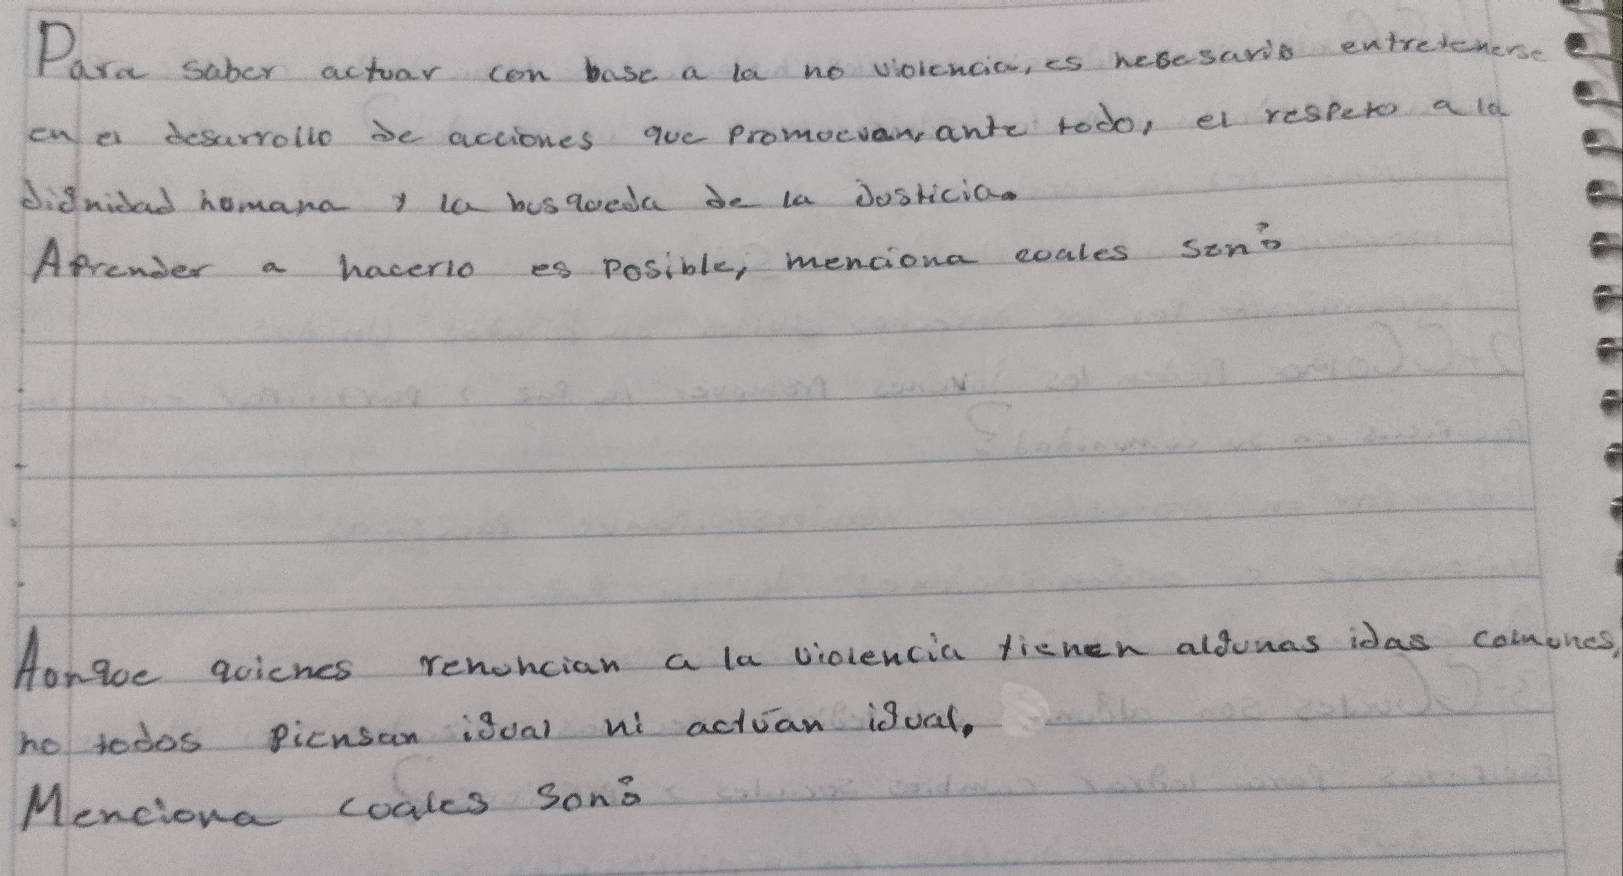 Para saber actuar con base a la no violencia, es nesesario entretenerse
en el desarrollo de acciones que promuevan, ante todo, el respeto a la
dignidad humana y la busqueda de la Justicia.
Aprender a hacerlo es posible, menciona cuales son:
Aunque quienes renuncian a la violencia tienen algunas idas comunes,
no todos piensan igual ni actúan igual.
Menciona cuales son: